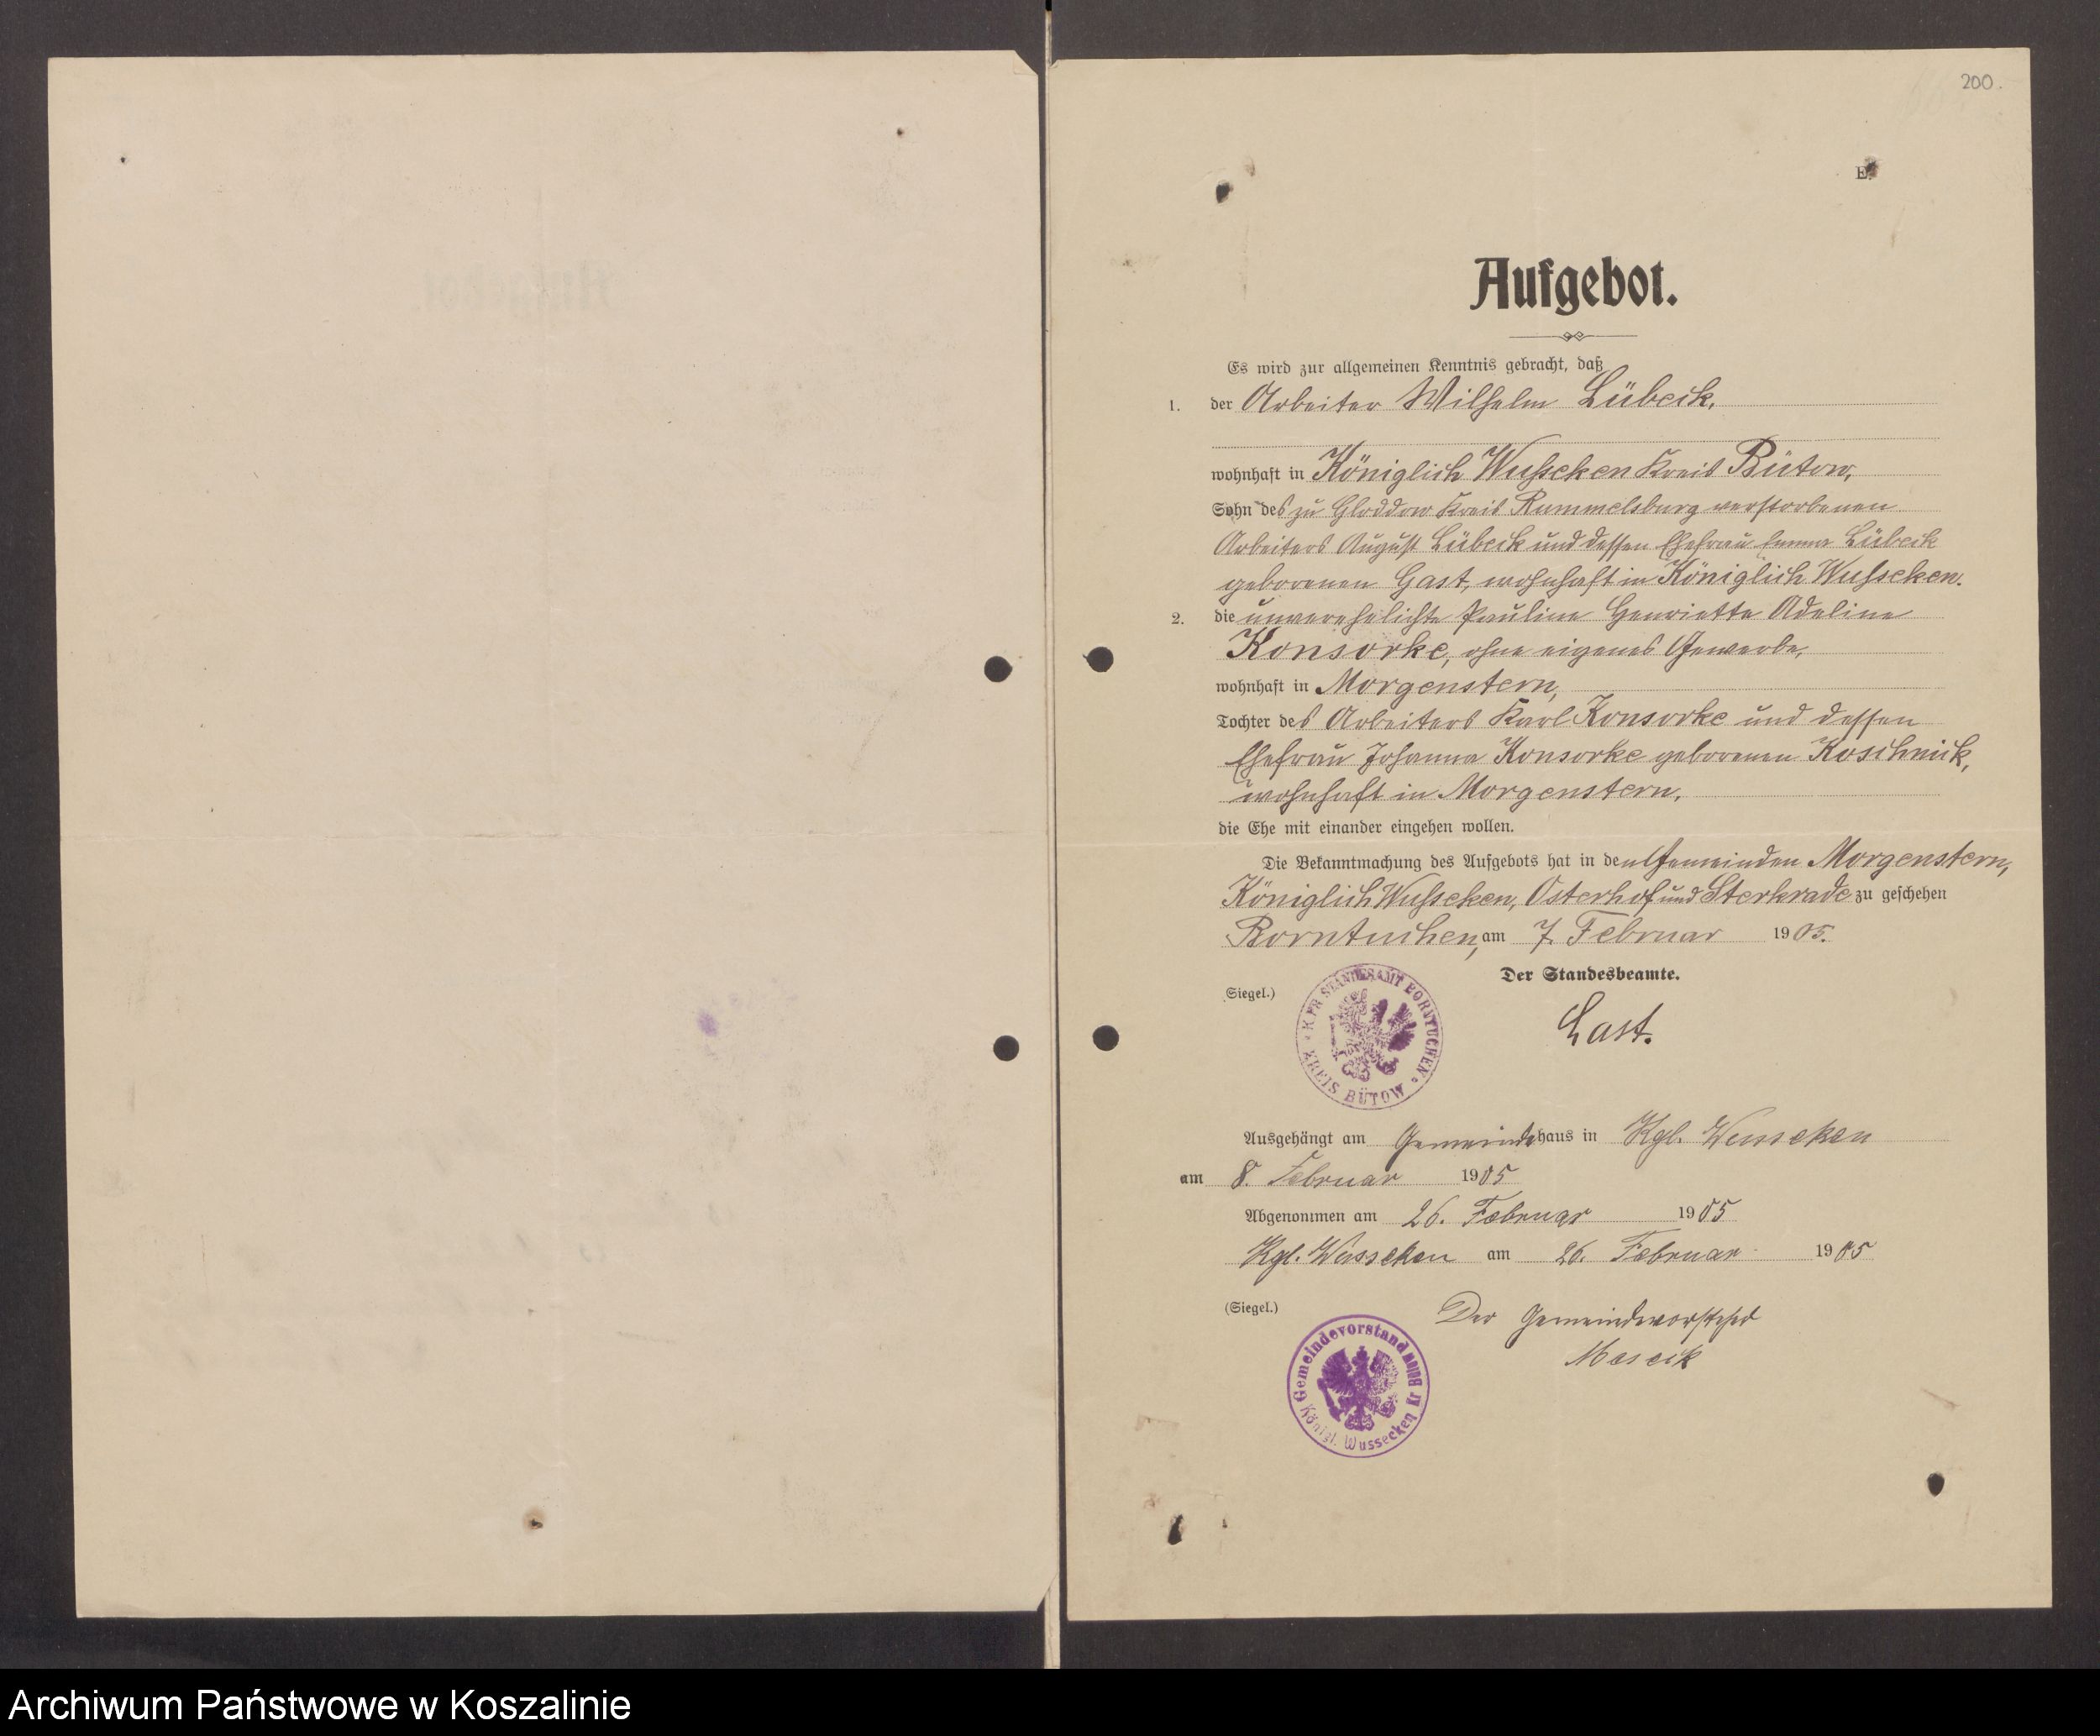 200.
E.
Aufgebot.
Es wird zur allgemeinen Kenntnis gebracht, daß
1. der Arbeiter Wilhelm Lübeck,
wohnhaft in Königlich Wusseken Kreis Bütow,
Sohn des zu Gloddow Kreis Rummelsburg verstorbenen
Arbeiters August Lübeck und dessen Ehefrau Lübeck
geborenen Gast, wohnhaft in Königlich Wusseken.
2. die unverehelichte Pauline Henriette Adeline
Konsorke, ohne eigenes Gewerbe,
wohnhaft in Morgenstern,
Tochter des Arbeiters Karl Konsorke und dessen
Ehefrau Johanna Konsorke geborenen Koschnick,
wohnhaft in Morgenstern,
die Ehe mit einander eingehen wollen.
Die Bekanntmachung des Aufgebots hat in den Gemeinden Morgenstern,
Königlich Wusseken, Osterhof und Sterkrade zu geschehen
Borntuchen, am 7. Februar 1905.
Der Standesbeamte.
(Siegel.)
K. PR. STANDESAMT BORNTUCHEN
KREIS BÜTOW
Last.
Ausgehängt am Gemeindehaus in Kgl. Wusseken
am 8. Februar 1905
Abgenommen am 26. Februar 1905
Kgl. Wusseken am 26. Februar 1905
(Siegel.)
Der Gemeindevorsteher
Gemeindevorstand
Königl. Wussecken Kr Bütow
Archiwum Państwowe w Koszalinie